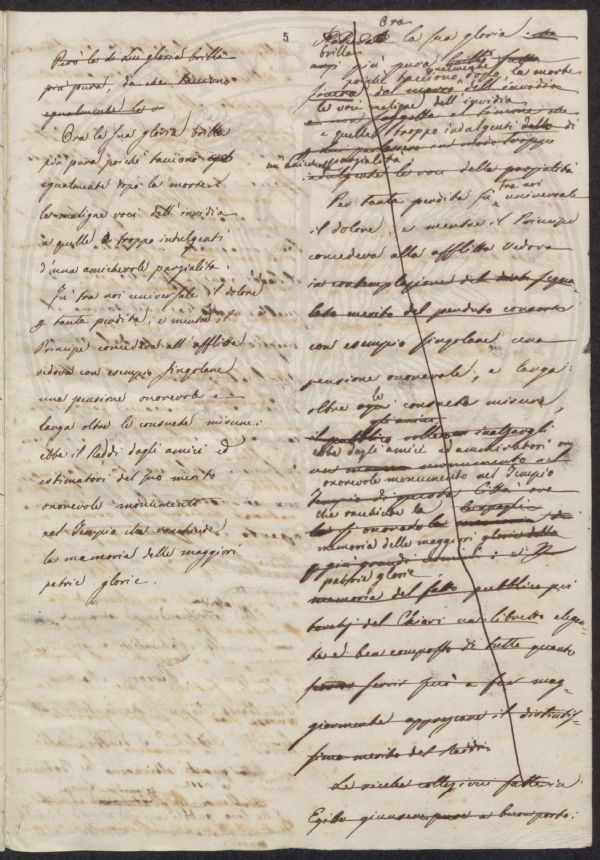 5
Però la di lui gloria brilla
più pura, da che tacciono
egualmente le
Ora la sua gloria brilla
più pura poichè taciono
egualmente dopo la morte
le maligne voci dell'invidia
e quelle troppo indulgenti
d'una amichevole parzialita.
Fu tra noi universale il dolore
p tanta perdita; e mentre il
Principe concedeva all'afflitta
vedova con esempio singolare
una pensione onorevole e
larga oltre le consuete misure;
ebbe il Raddi dagli amici ed
estimatori del suo merito
onorevole monumento
nel Tempio che racchiude
la memoria delle maggiori
patrie glorie.
Ora
la sua gloria
brilla
più pura
poichè tacciono egualmente dopo la morte
le voci maligne dell'invidia
e quelle troppo indulgenti di
un'amichevole parzialita
indulgente le voci della parzialità
Per tanta perdita fu tra noi universale
il dolore, e mentre il Principe
concedeva alla afflitta vedova
in contemplazione del segna
lato merito del perduto consorte
con esempio singolare una
pensione onorevole, e larga
oltre le consuete misure,
gli amici
ebbe dagli amici ed ammiratori
onorevole monumento nel Tempio
Tempio di questa Città ove
che racchiude la
memoria delle maggiori glorie della
più grandi uomini: e il
patrie glorie
memoria del fatto pubblico pei
torchj del Chiari un libretto elegan
te ed ben composto di tutto quanto
servir può a far mag-
giormente apprezzare il distintis-
simo merito del Raddi.
Le ricche collezioni fatte in
Egitto giunsero a buon porto: